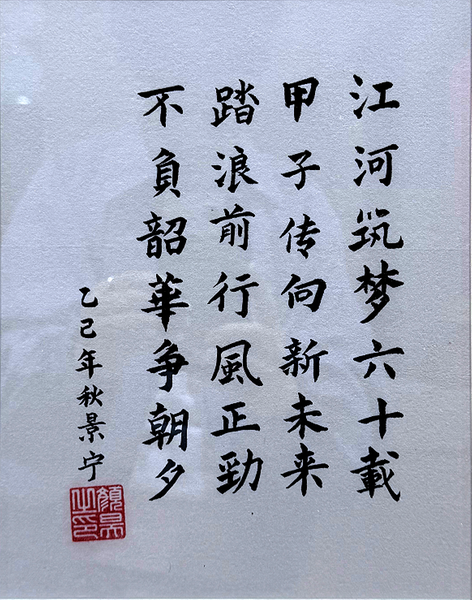 江河筑梦六十載
甲子传向新未来
踏浪前行風正勁
不負韶華争朝夕
乙巳年秋景宁
顔景之印